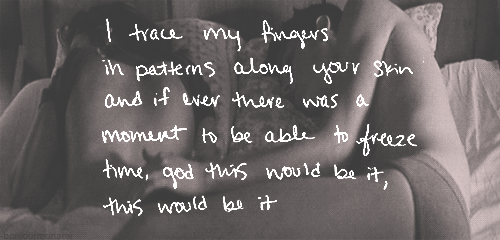 I trace my fingers
in patterns along your skin
and if ever there was a
moment to be able to freeze
time, god this would be it,
this would be it